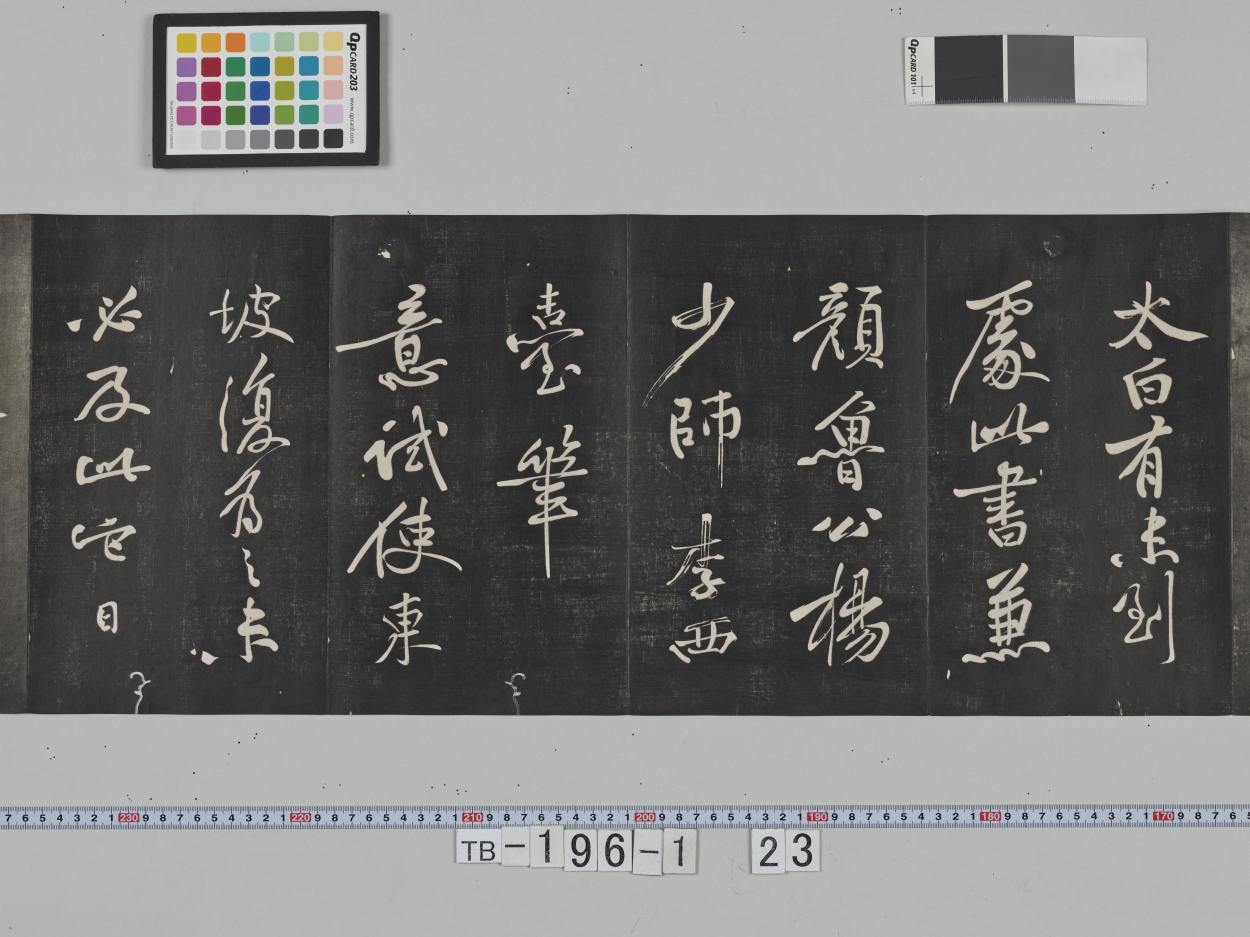 太白有未到
處此書兼
顏魯公楊
少師李西
臺筆
意試使東
坡復為之未
必及此它日
QPCARD 203
www.qpcard.com
QPCARD 101
7 6 5 4 3 2 1 230 9 8 7 6 5 4 3 2 1 220 9 8 7 6 5 4 3 2 1 210 9 8 7 6 5 4 3 2 1 200 9 8 7 6 5 4 3 2 1 190 9 8 7 6 5 4 3 2 1 180 9 8 7 6 5 4 3 2 1 170 9 8 7 6 5
TB-196-1 23